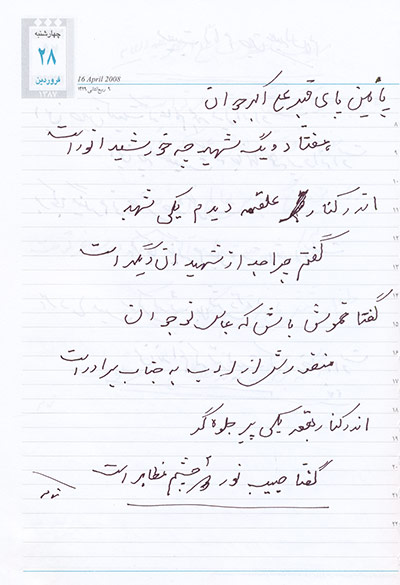 چهارشنبه
۲۸
فروردین
۱۳۸۷
16 April 2008
۹ ربیع‌الثانی ۱۴۲۹
پائین پای قبر علی اکبر جوان
هفتاد و یک شهید چه خورشید انور است
اندر کنار علقمه دیدم یکی شهید
گفتم چرا جدا ز شهیدان دیگر است
گفتا خموش باش که عباس نوجوان
منظورش از ادب به جناب برادر است
اندر کنار بقعه یکی پیر جلوه گر
گفتا حبیب نور دو چشم مظاهر است
۸
۹
۱۰
۱۱
۱۲
۱۳
۱۴
۱۵
۱۶
۱۷
۱۸
۱۹
۲۰
۲۱
۲۲